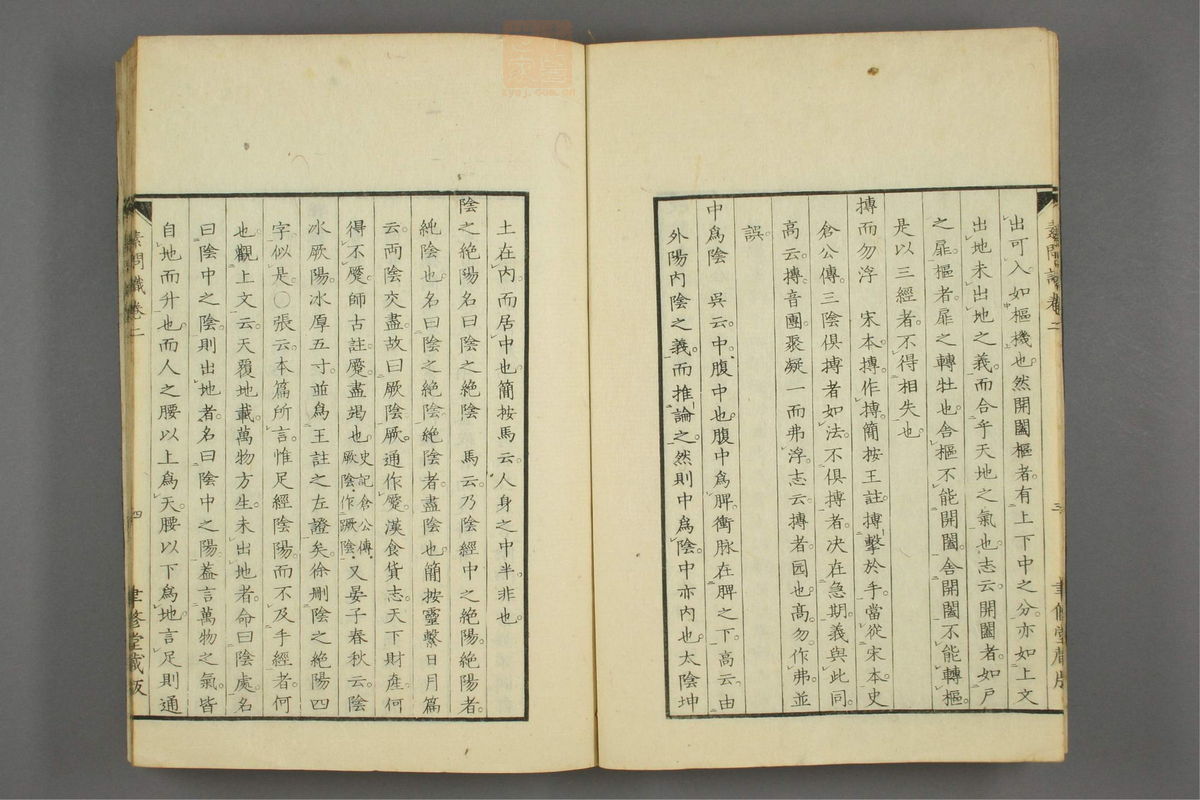 出可入如樞機也然開闔樞者有上下中之分亦如上文
出地未出地之義而合乎天地之氣也志云開闔者如戶
之扉樞者扉之轉牡也舍樞不能開闔舍開闔不能轉樞
是以三經者不得相失也
搏而勿浮 宋本搏作摶簡按王註搏擊於手當從宋本史
倉公傳三陰俱搏者如法不俱搏者决在急期義與此同
高云摶音團聚凝一而弗浮志云摶者园也高勿作弗並
誤
中爲陰 吳云中腹中也腹中爲脾衝脉在脾之下高云由
外陽內陰之義而推論之然則中爲陰中亦內也太陰坤
素問識卷二 三 聿修堂藏版
土在內而居中也簡按馬云人身之中半非也
陰之絶陽名曰陰之絶陰 馬云乃陰經中之絶陽絶陽者
純陰也名曰陰之絶陰絶陰者盡陰也簡按靈繫日月篇
云両陰交盡故曰厥陰厥通作蹷漢食貨志天下財產何
得不蹷師古註蹷盡竭也史記倉公傳厥陰作蹶陰又晏子春秋云陰
水厥陽冰厚五寸並爲王註之左證矣徐刪陰之絶陽四
字似是○張云本篇所言惟足經陰陽而不及手經者何
也觀上文云天覆地載萬物方生未出地者命曰陰處名
曰陰中之陰則出地者名曰陰中之陽蓋言萬物之氣皆
自地而升也而人之腰以上爲天腰以下爲地言足則通
素問識卷二 四 聿修堂藏版